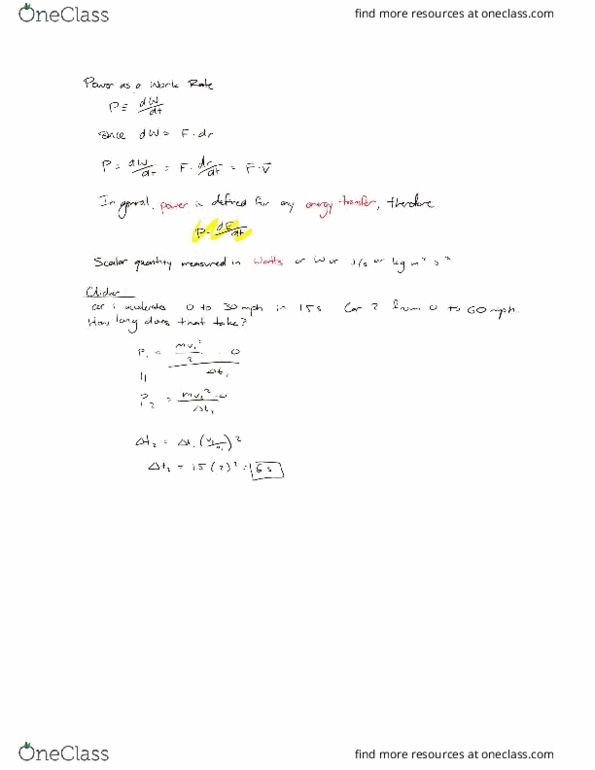 OneClass
find more resources at oneclass.com
Power as a Work Rate
P ≡ dW/dt
Since dW = F · dr
P = dW/dt = F · dr/dt = F · v̅
In general, power is defined for any energy transfer, therefore
P = dE/dt
Scalar quantity measured in Watts or W or J/s or kg m² s⁻³
Clicker
car 1 accelerates 0 to 30 mph in 15s Car 2 from 0 to 60 mph.
How long does that take?
P₁ = mv₁²/2 - 0 / Δt₁
||
P₂ = mv₂² - 0 / Δt₂
Δt₂ = Δt₁ (v₂/v₁)²
Δt₂ = 15 (2)² =
OneClass
find more resources at oneclass.com